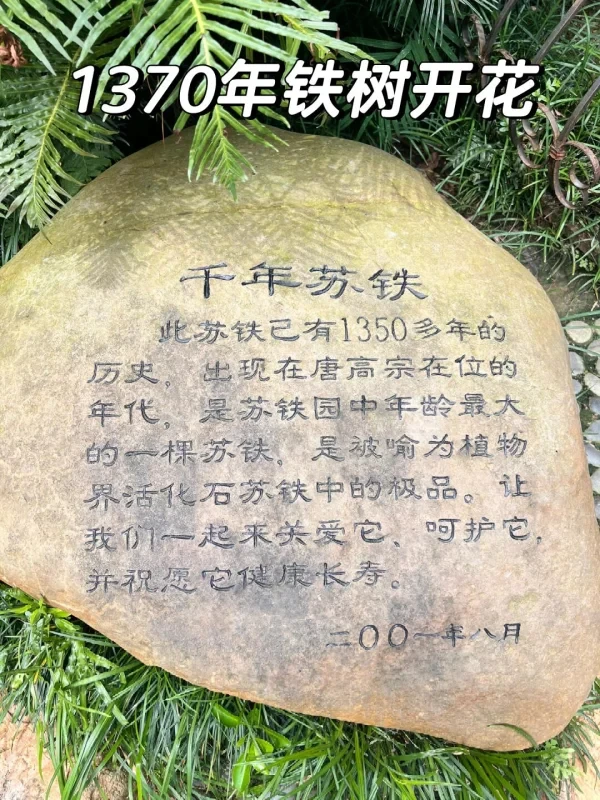 1370年铁树开花
千年苏铁
此苏铁已有1350多年的
历史，出现在唐高宗在位的
年代，是苏铁园中年龄最大
的一棵苏铁，是被喻为植物
界活化石苏铁中的极品。让
我们一起来关爱它、呵护它，
并祝愿它健康长寿。
二〇〇一年八月